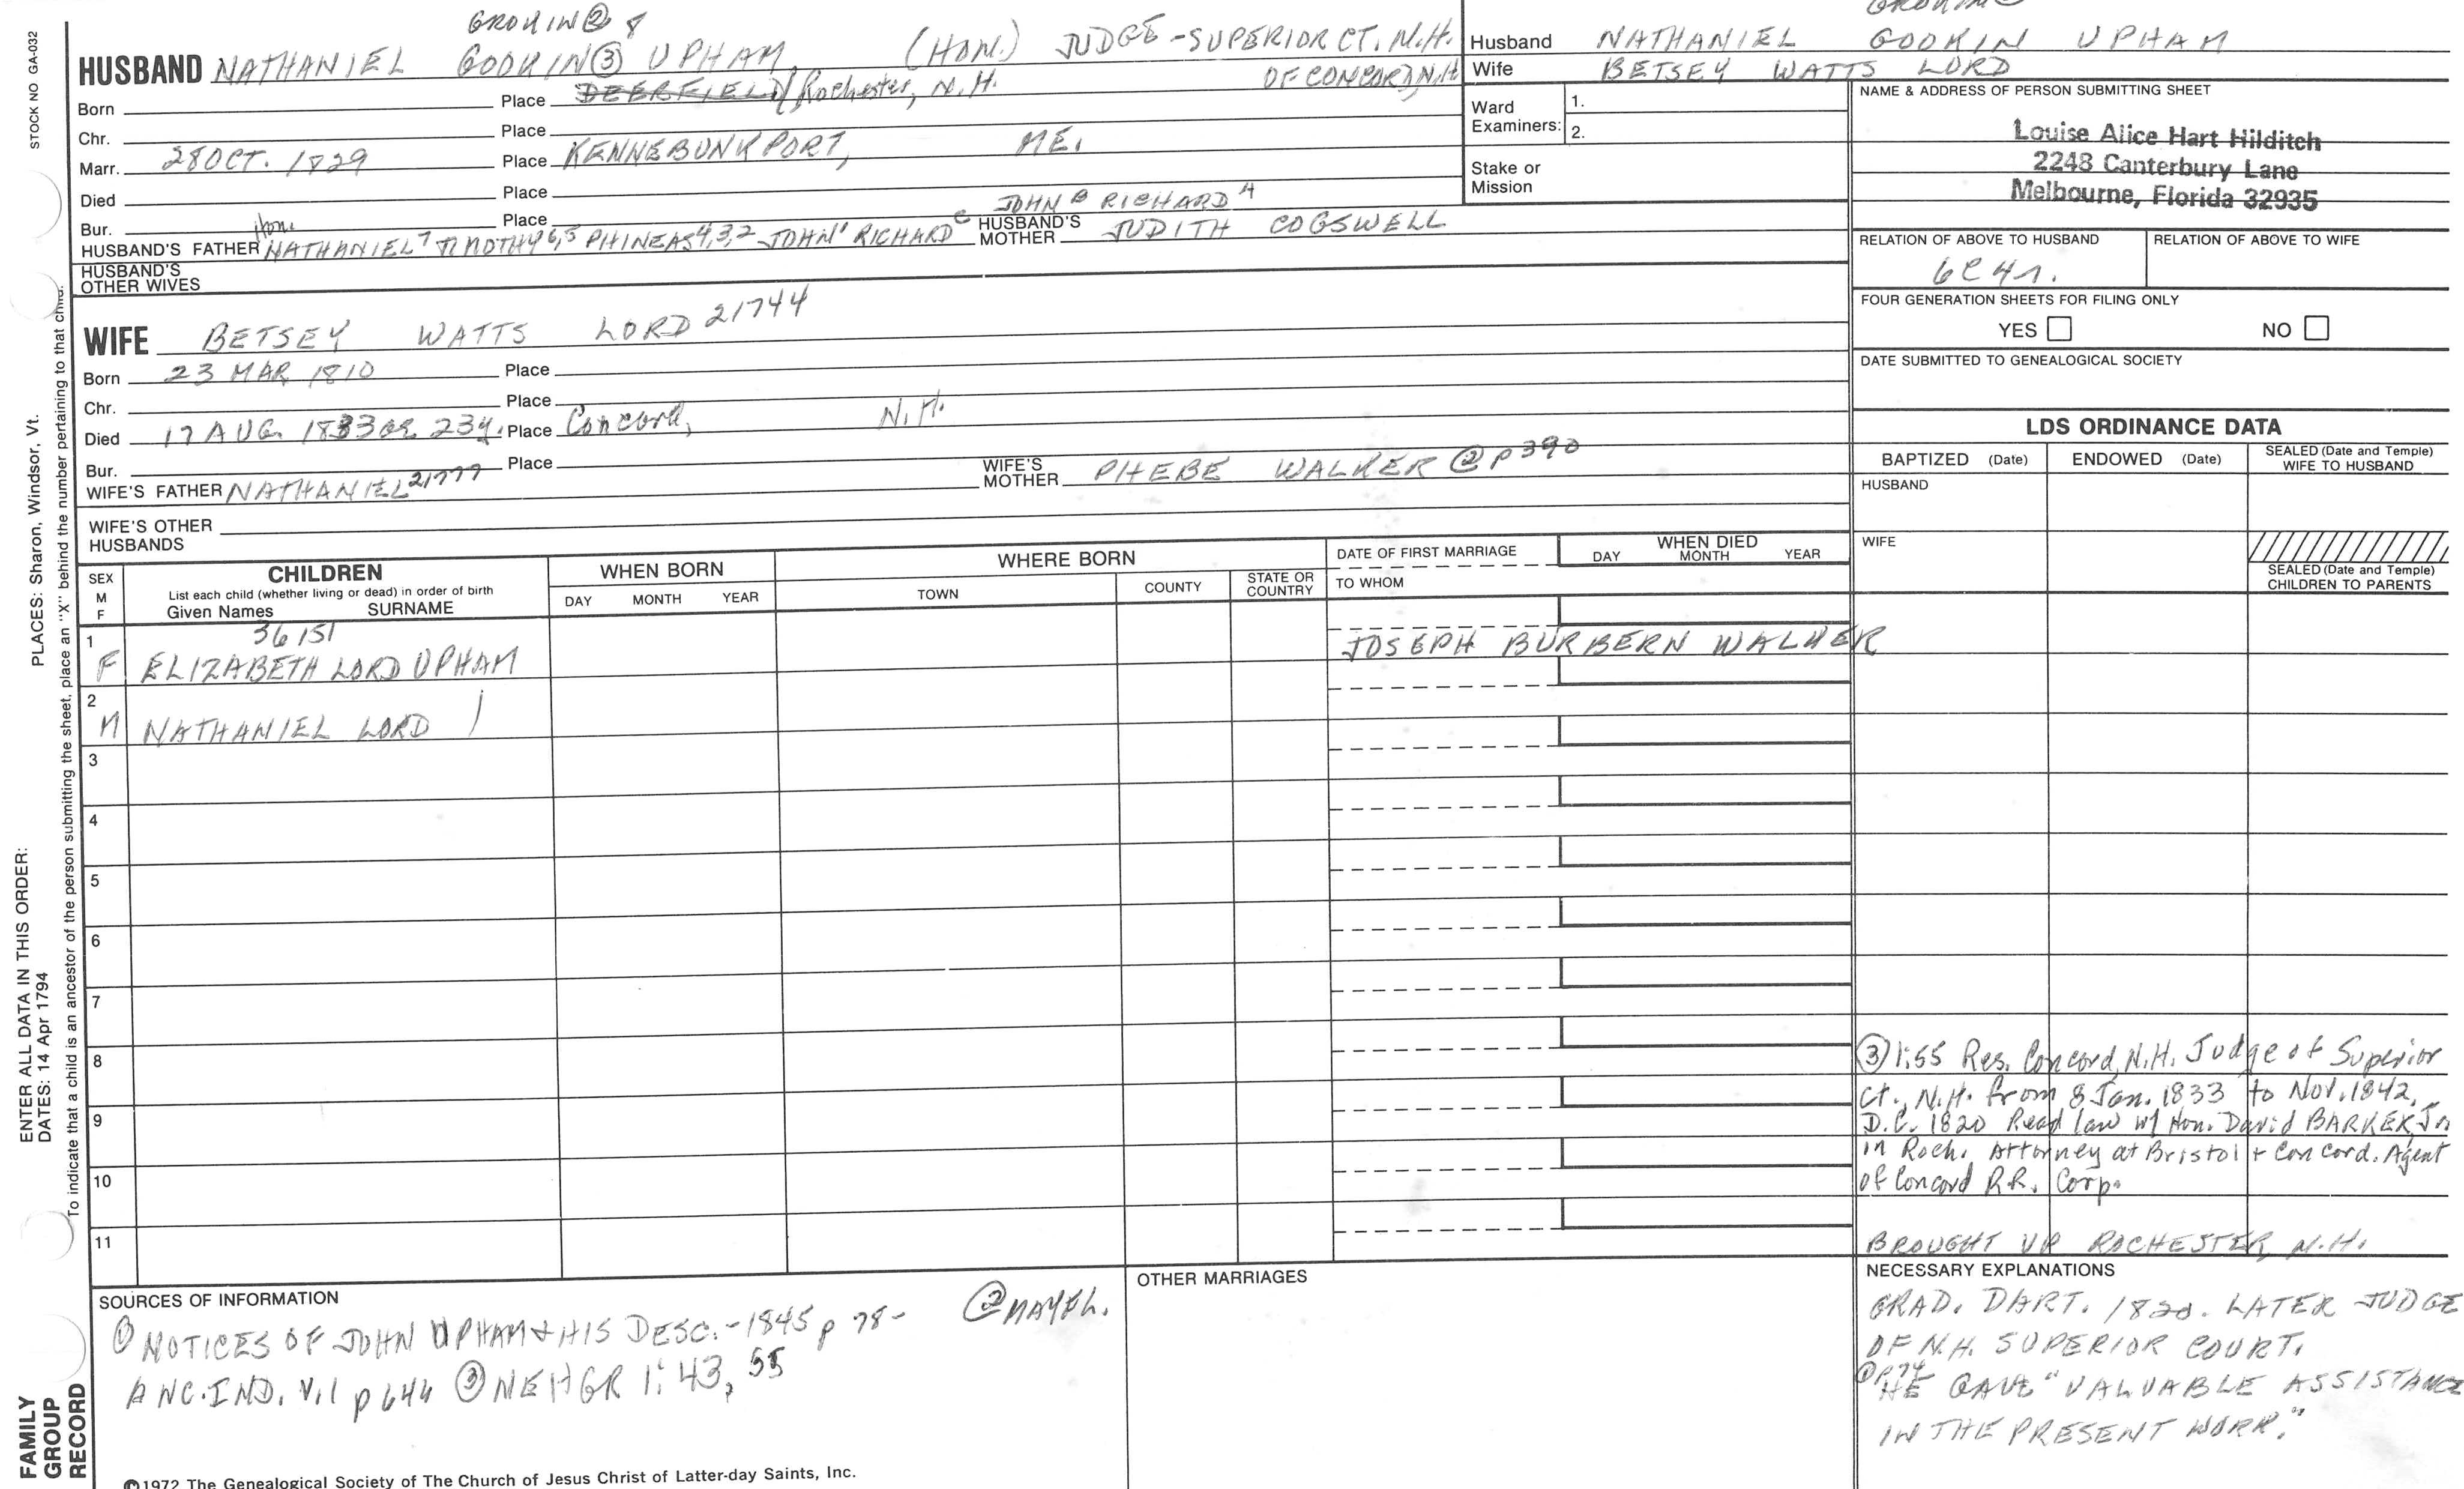 STOCK NO GA-032
PLACES: Sharon, Windsor, Vt.
ENTER ALL DATA IN THIS ORDER:
DATES: 14 Apr 1794
To indicate that a child is an ancestor of the person submitting the sheet, place an "X" behind the number pertaining to that child.
FAMILY
GROUP
RECORD
② 8
HUSBAND NATHANIEL GOOKIN③ UPHAM, (HON.) JUDGE - SUPERIOR CT. N.H.
OF CONCORD, N.H
Born Place DEERFIELD/Rochester, N.H.
Chr. Place
Marr. 28 OCT. 1829 Place KENNEBUNKPORT, ME.
Died Place
Bur. Place JOHN B RICHARD A
Hon.
HUSBAND'S FATHER NATHANIEL7 TIMOTHY6,5 PHINEAS4,3,2 JOHN1 RICHARD C HUSBAND'S MOTHER JUDITH COGSWELL
HUSBAND'S OTHER WIVES
WIFE BETSEY WATTS LORD 21744
Born 23 MAR 1810 Place
Chr. Place
Died 17 AUG. 1833 OR 23y. Place Concord, N.H.
Bur. Place
WIFE'S FATHER NATHANIEL 21777 WIFE'S MOTHER PHEBE WALKER @ p390
WIFE'S OTHER HUSBANDS
Husband NATHANIEL GOOKIN UPHAM
Wife BETSEY WATTS LORD
Ward Examiners: 1.
2.
Stake or Mission
NAME & ADDRESS OF PERSON SUBMITTING SHEET
Louise Alice Hart Hilditch
2248 Canterbury Lane
Melbourne, Florida 32935
RELATION OF ABOVE TO HUSBAND RELATION OF ABOVE TO WIFE
6C4r.
FOUR GENERATION SHEETS FOR FILING ONLY
YES NO
DATE SUBMITTED TO GENEALOGICAL SOCIETY
LDS ORDINANCE DATA
BAPTIZED (Date) ENDOWED (Date) SEALED (Date and Temple) WIFE TO HUSBAND
HUSBAND
WIFE
SEALED (Date and Temple) CHILDREN TO PARENTS
SEX M F CHILDREN WHEN BORN WHERE BORN DATE OF FIRST MARRIAGE WHEN DIED
List each child (whether living or dead) in order of birth
Given Names SURNAME DAY MONTH YEAR TOWN COUNTY STATE OR COUNTRY TO WHOM DAY MONTH YEAR
36151
1 F ELIZABETH LORD UPHAM JOSEPH BURBERN WALKER
2 M NATHANIEL LORD /
3
4
5
6
7
8
9
10
11
③ 1:55 Res. Concord, N.H. Judge of Superior
Ct., N.H. from 8 Jan. 1833 to Nov. 1842.
D.C. 1820 Read law w/ Hon. David BARKER, Jr.
in Roch. Attorney at Bristol + Concord. Agent
of Concord R.R. Corp.
BROUGHT UP ROCHESTER, N.H.
SOURCES OF INFORMATION
① NOTICES OF JOHN UPHAM & HIS DESC. - 1845 p 78-
ANC. IND. V.1 p 644 ③ NEHGR 1: 43, 55
OTHER MARRIAGES
NECESSARY EXPLANATIONS
GRAD. DART. 1820. LATER JUDGE
OF N.H. SUPERIOR COURT.
① p.74
HE GAVE "VALUABLE ASSISTANCE
IN THE PRESENT WORK."
©1972 The Genealogical Society of The Church of Jesus Christ of Latter-day Saints, Inc.